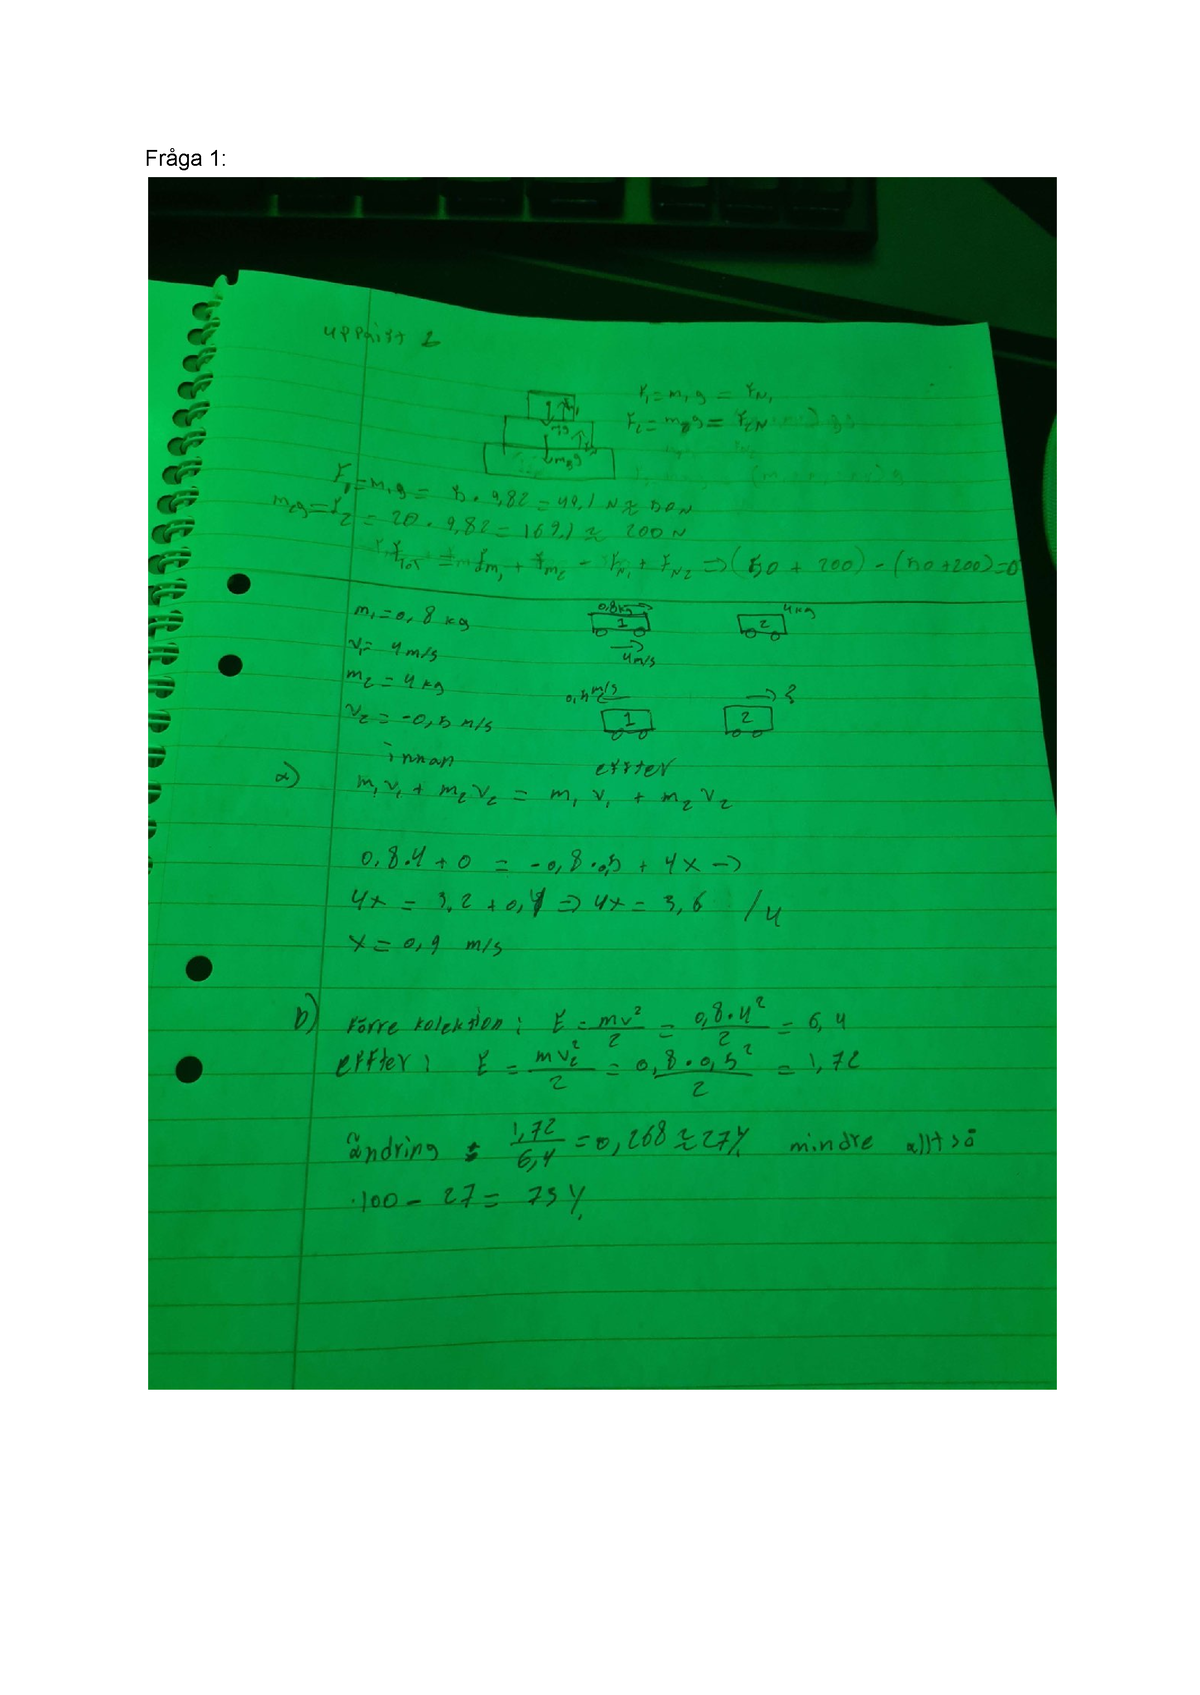 Fråga 1:
uppgift 1
F₁ = m₁g = F_N₁
F₂ = m₂g = F₂N
m₁g
m₂g
F₁ = m₁g = 5 · 9,82 = 49,1 N ≈ 50 N
m₂g = F₂ = 20 · 9,82 = 169,1 ≈ 200 N
+ F_m₂ - F_N₁ + F_N₂ => (50 + 200) - (50+200)=0
m₁=0,8 kg
0,8kg
1
4m/s
2
4kg
v₁= 4 m/s
m₂ = 4 kg
0,5 m/s
1
2
?
v₂ = -0,5 m/s
innan
effter
a) m₁v₁ + m₂v₂ = m₁ v₁ + m₂ v₂
0,8·4 + 0 = -0,8·0,5 + 4x ->
4x = 3,2 + 0,4 => 4x = 3,6 /4
x = 0,9 m/s
b) Förre kolektion: E = mv²/2 = 0,8·4²/2 = 6,4
effter: E = mv₂²/2 = 0,8·0,5²/2 = 1,72
ändring : 1,72/6,4 = 0,268 ≈ 27% mindre alltså
100 - 27 = 73%